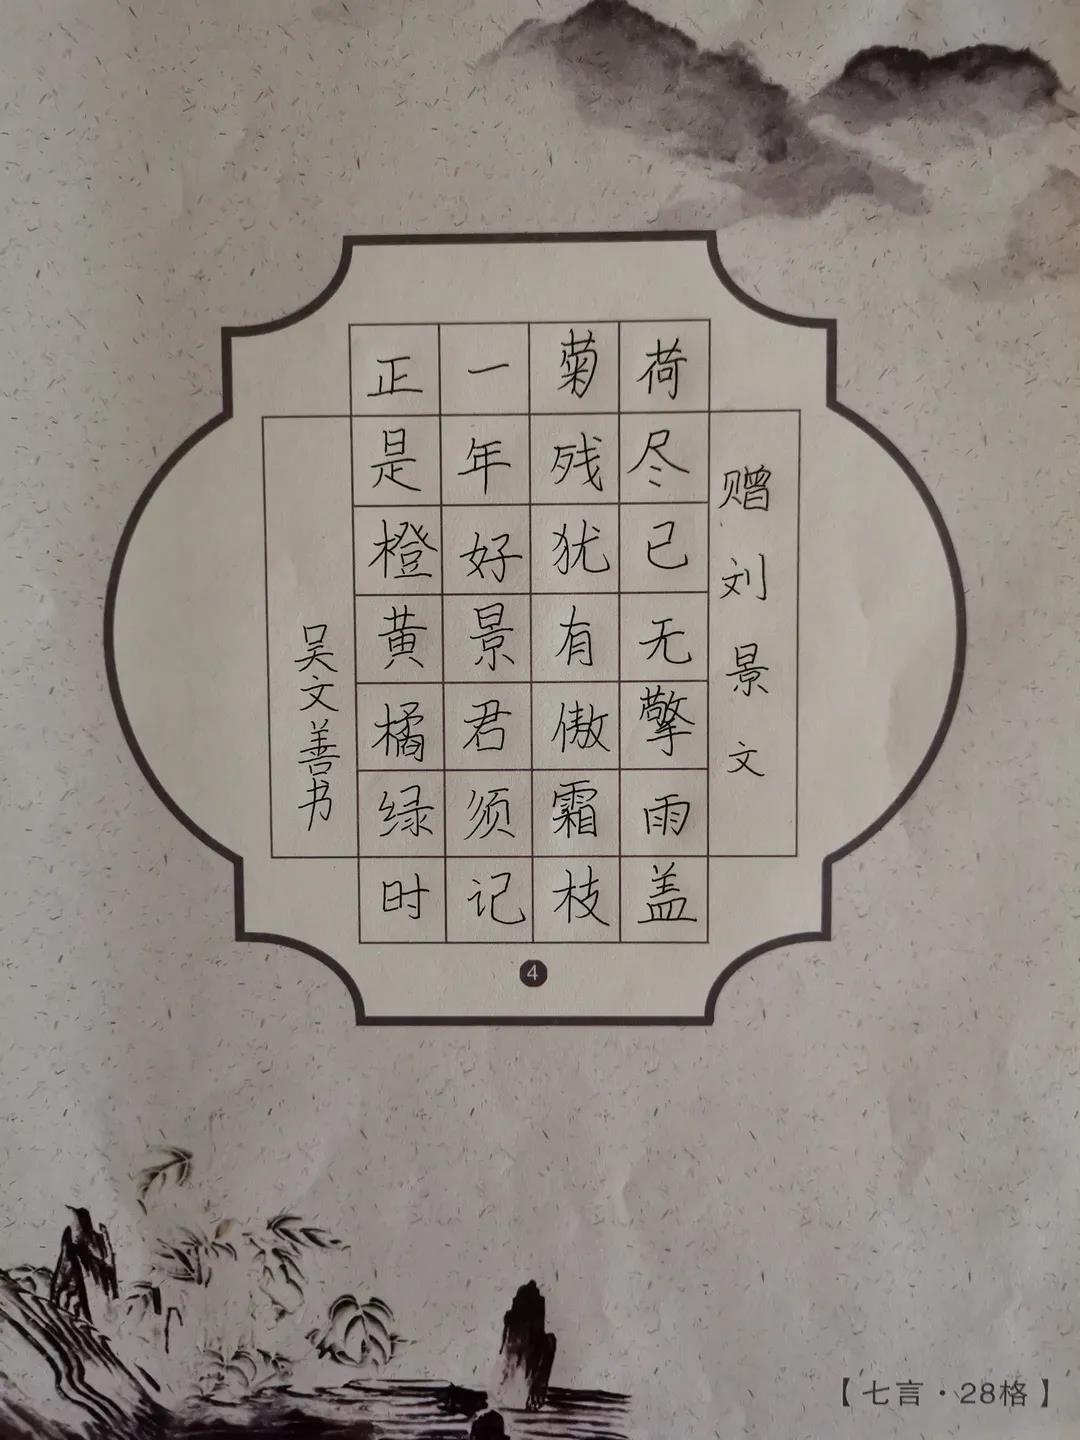 赠刘景文
荷尽已无擎雨盖
菊残犹有傲霜枝
一年好景君须记
正是橙黄橘绿时
吴文善书
4
【七言·28格】